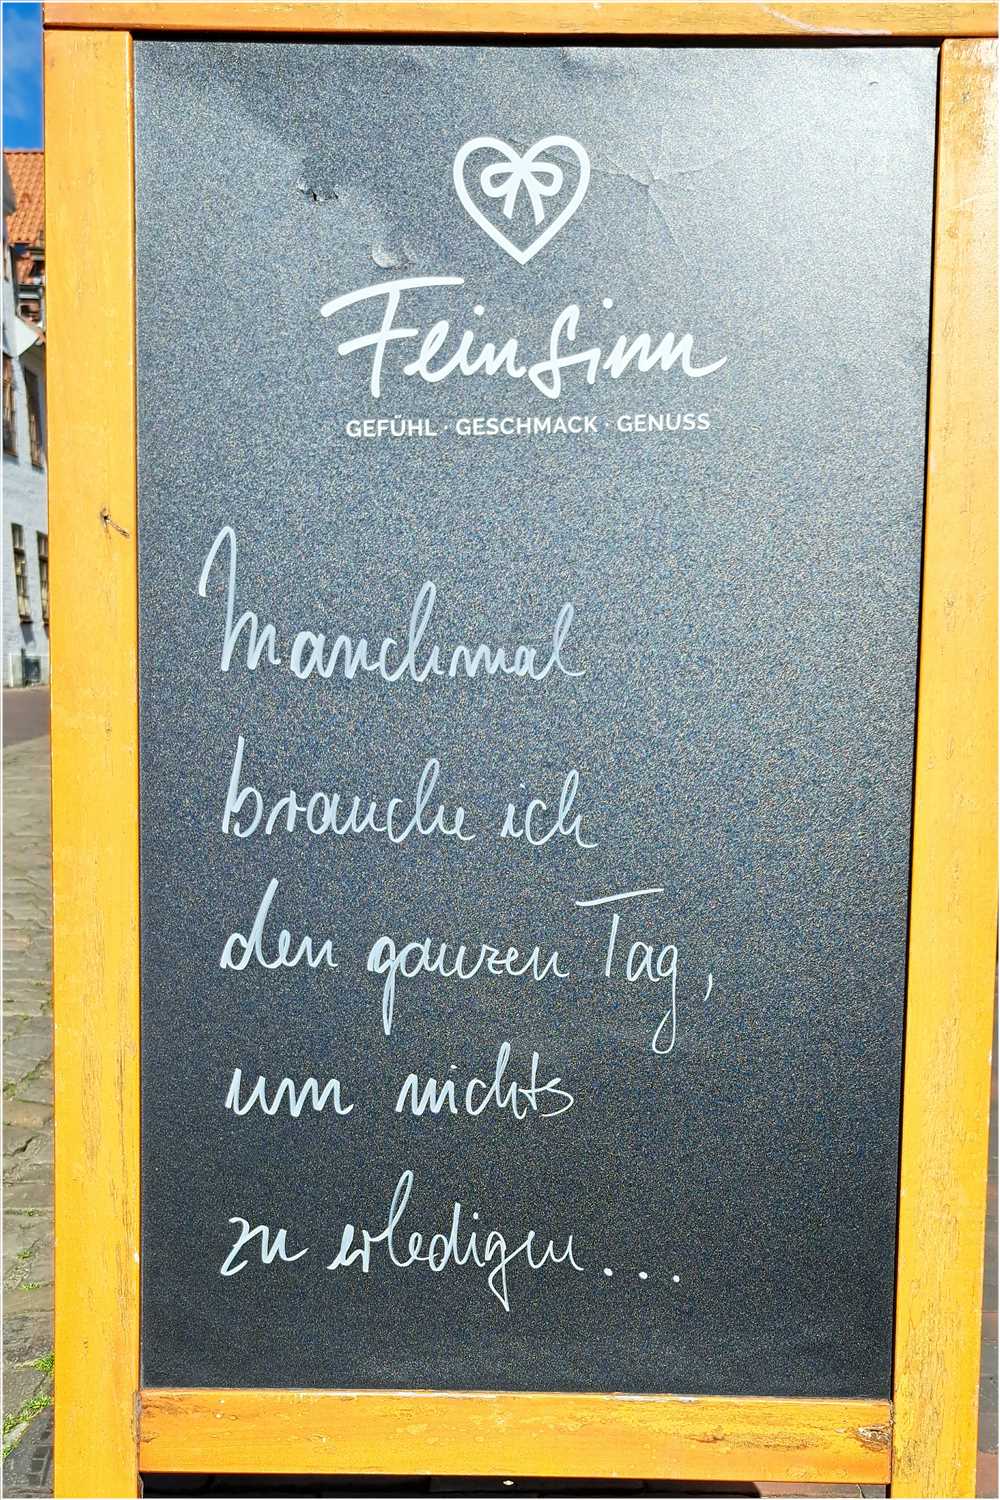 Feinsinn
GEFÜHL · GESCHMACK · GENUSS
Manchmal
brauche ich
den ganzen Tag,
um nichts
zu erledigen....